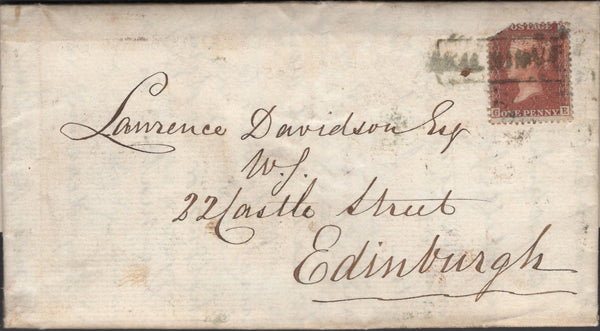 POSTAGE
ONE PENNY
Lawrence Davidson Esq
W.S.
22 Castle Street
Edinburgh